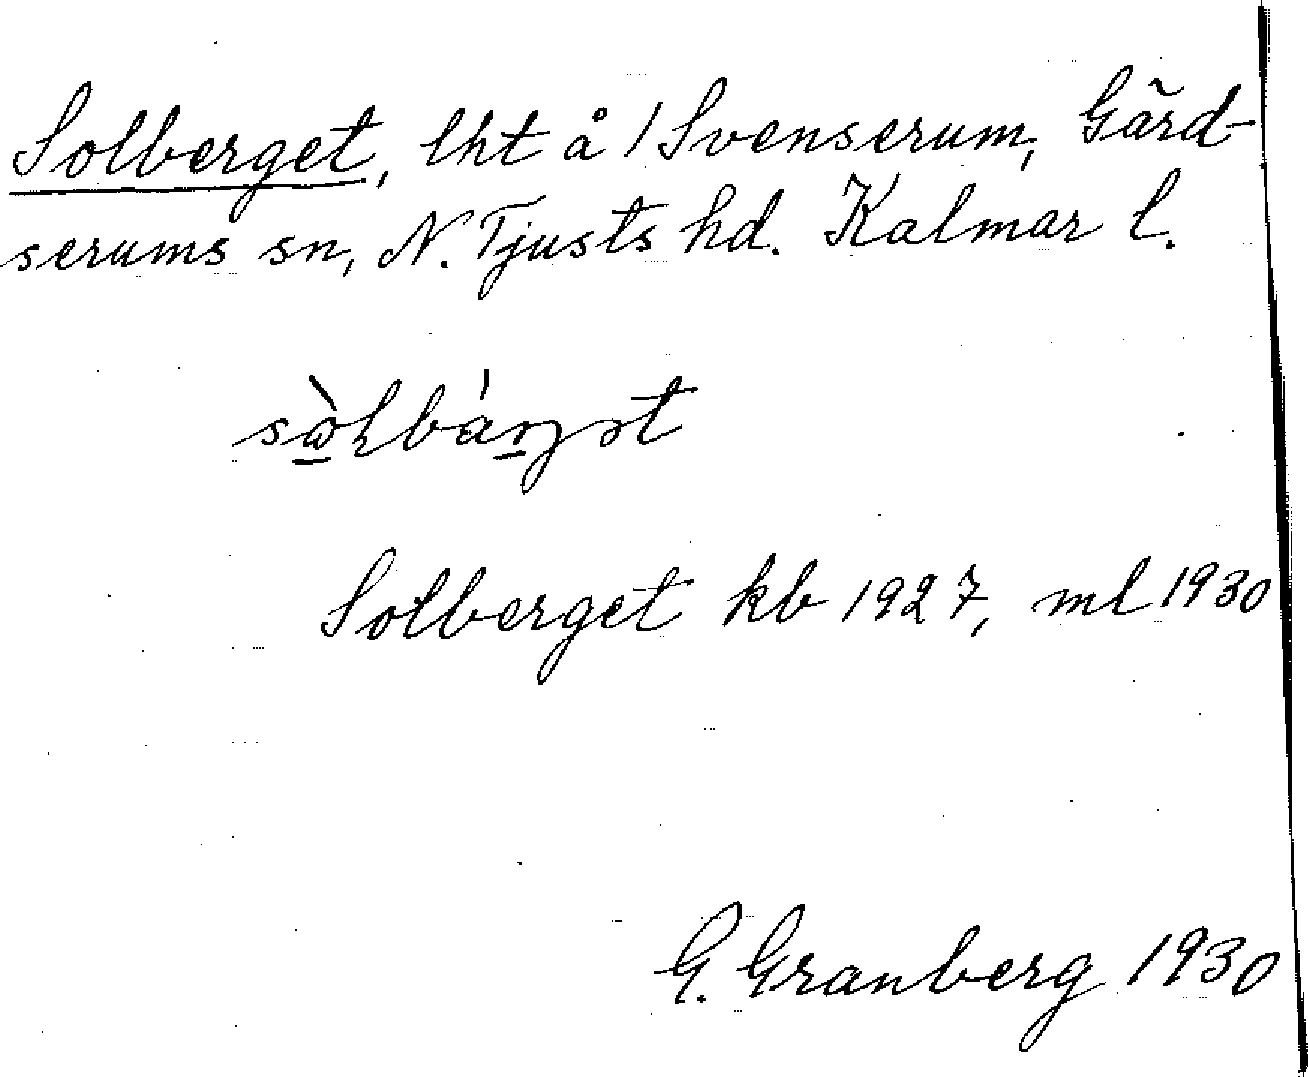 Solberget, lht å / Svenserum, Gärd-
serums sn, N. Tjusts hd. Kalmar l.
Solberget kb 1927, ml 1930
G. Granberg 1930